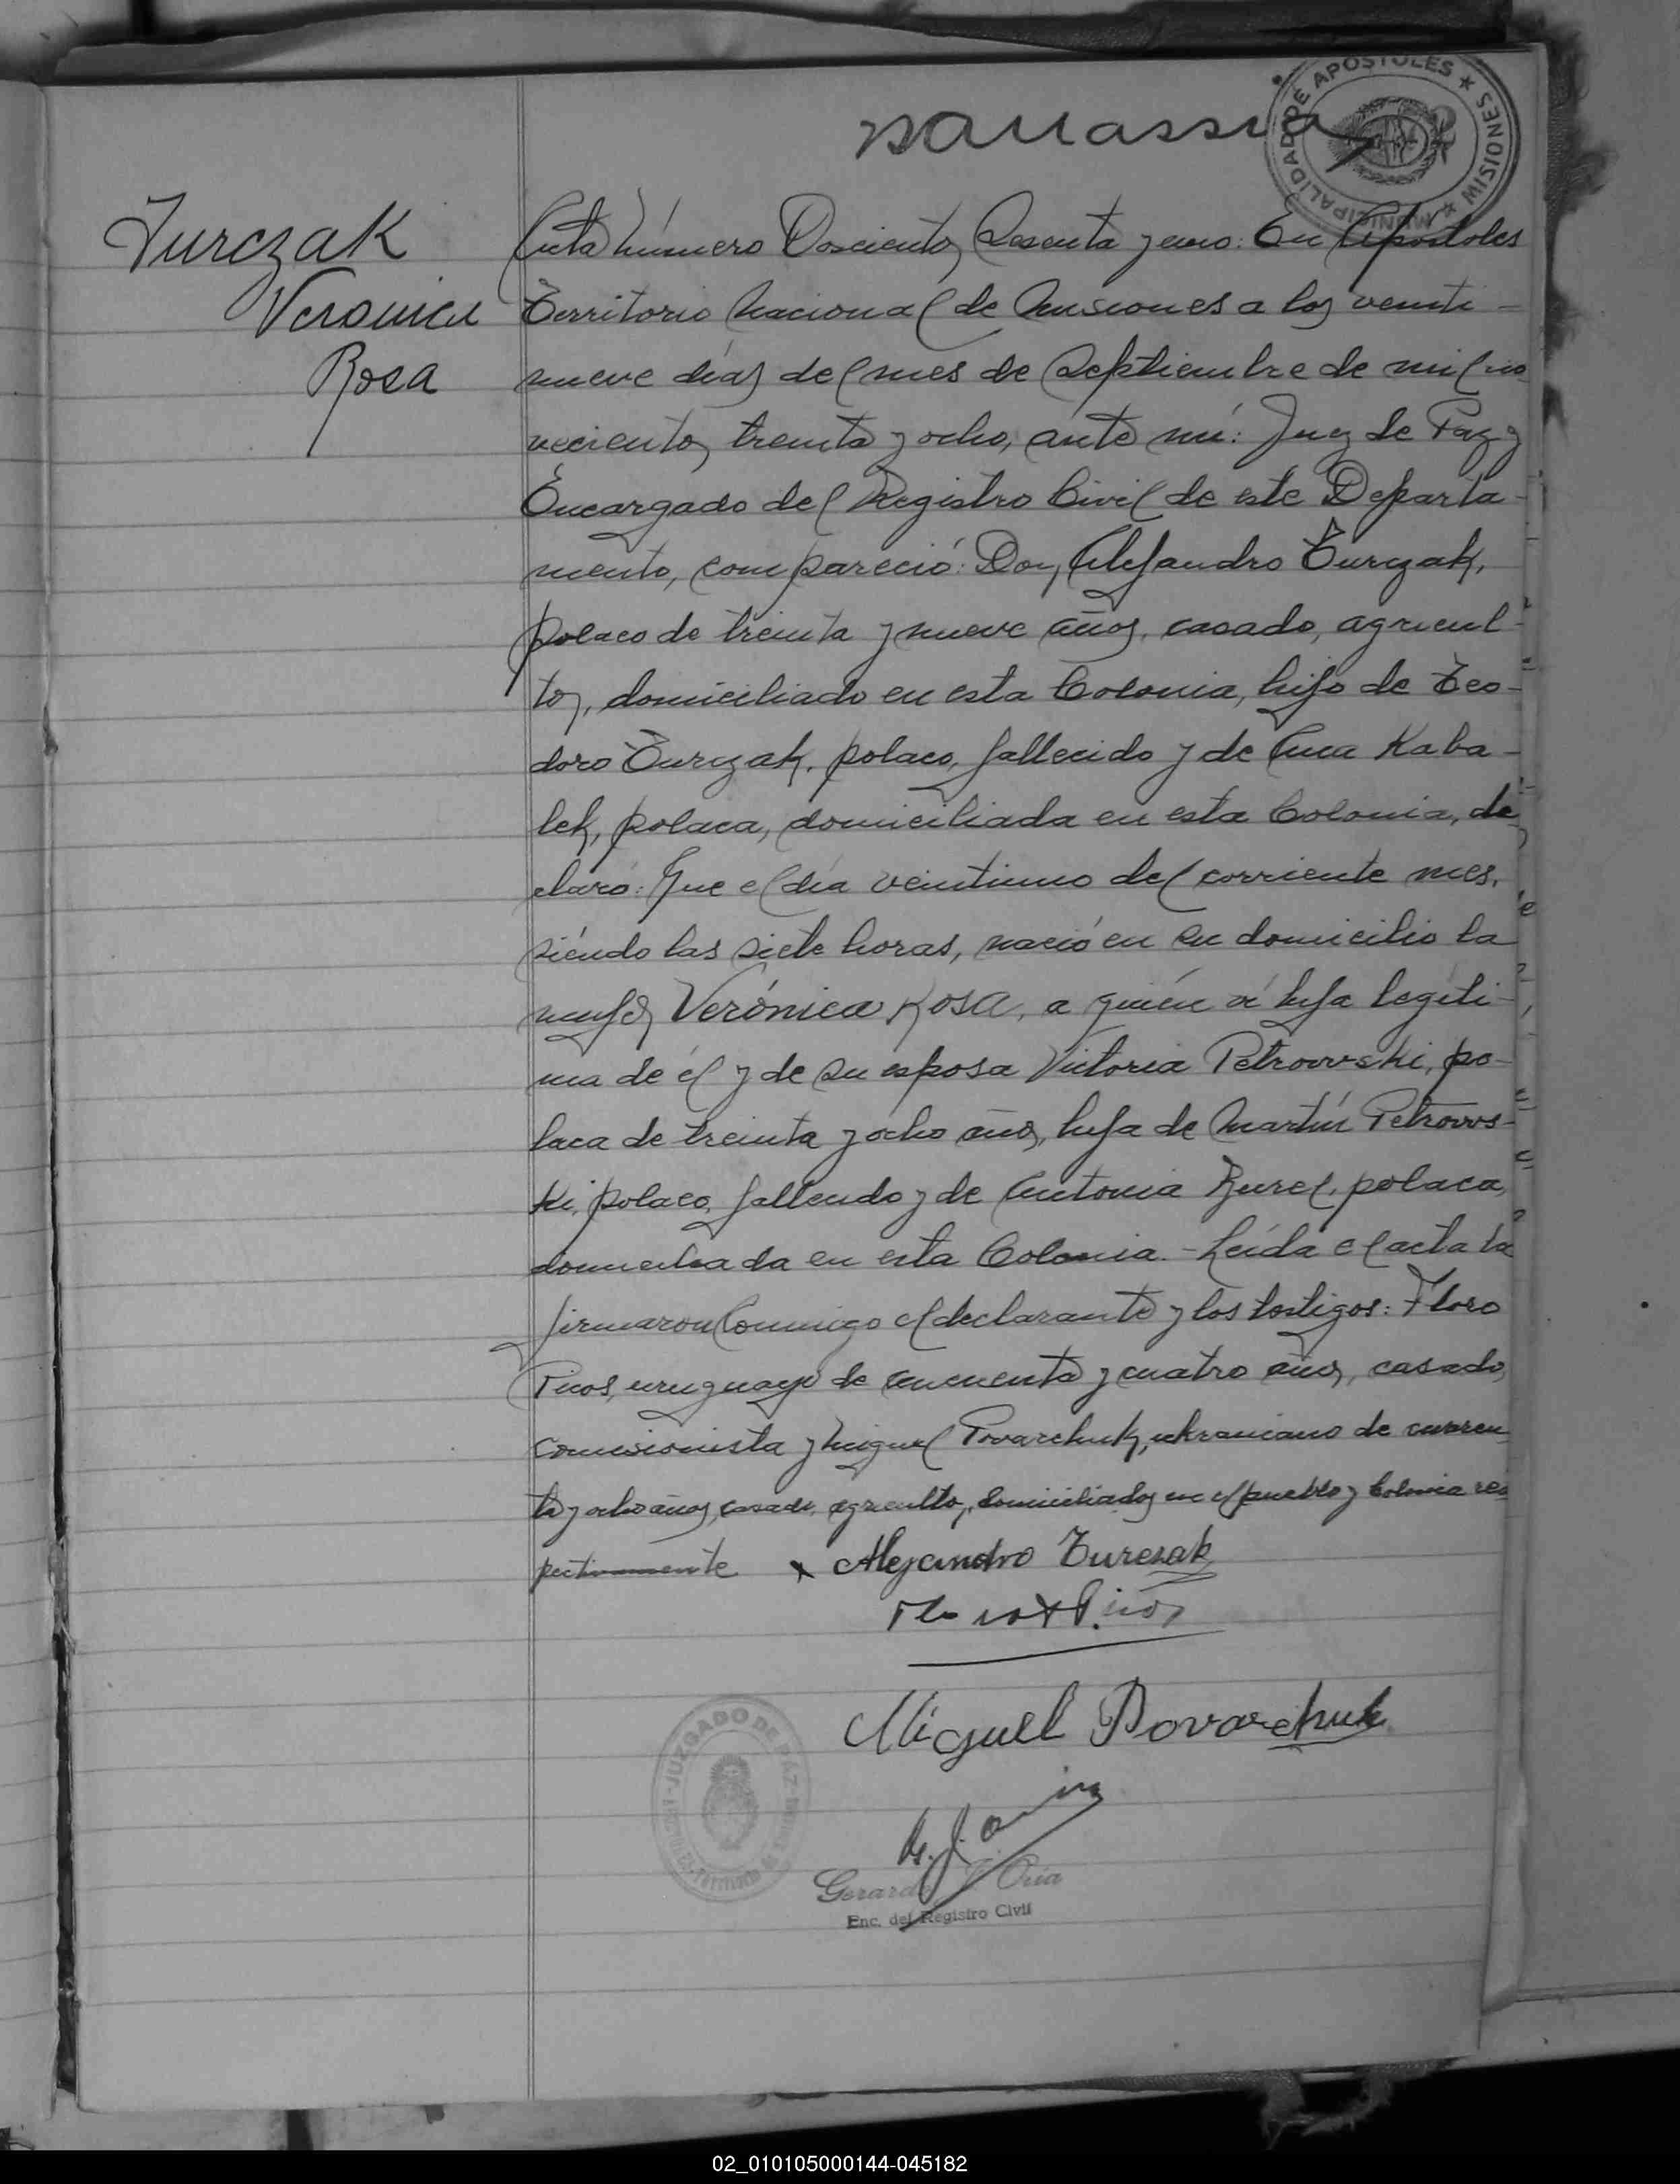 MUNICIPALIDAD DE APOSTOLES ★ MISIONES ★
Turczak
Veronica
Rosa
Acta número Doscientos Sesenta y uno: En Apostoles
Territorio Nacional de Misiones a los veinti-
nueve días del mes de Septiembre de mil no
vecientos treinta y ocho, ante mí: Juez de Paz y
Encargado del Registro Civil de este Departa-
mento, compareció: Don Alejandro Turczak,
polaco de treinta y nueve años, casado, agricul-
tor, domiciliado en esta Colonia, hijo de Teo-
doro Turczak, polaco, fallecido y de Ana Kaba-
lek, polaca, domiciliada en esta Colonia, de
claró: Que el día veintiuno del corriente mes,
siéndo las siete horas, nació en su domicilio la
mujer Verónica Rosa, a quién vi hija legíti-
ma de él y de su esposa Victoria Petrowski, po-
laca de treinta y ocho años, hija de Martín Petrows-
ki, polaco, fallecido y de Antonia polaca,
domiciliada en esta Colonia.- Leída el acta la
firmaron Conmigo el declarante y los testigos: Floro
uruguayo de cincuenta y cuatro años, casado,
comisionista y Miguel Povarchuk, ukraniano de cuaren
ta y ocho años, casado, agricultor, domiciliados en el pueblo y Colonia res
pectivamente x Alejandro Turczak
Miguel Povarchuk
JUZGADO DE PAZ
Gerardo J. Oria
Enc. del Registro Civil
02_010105000144-045182